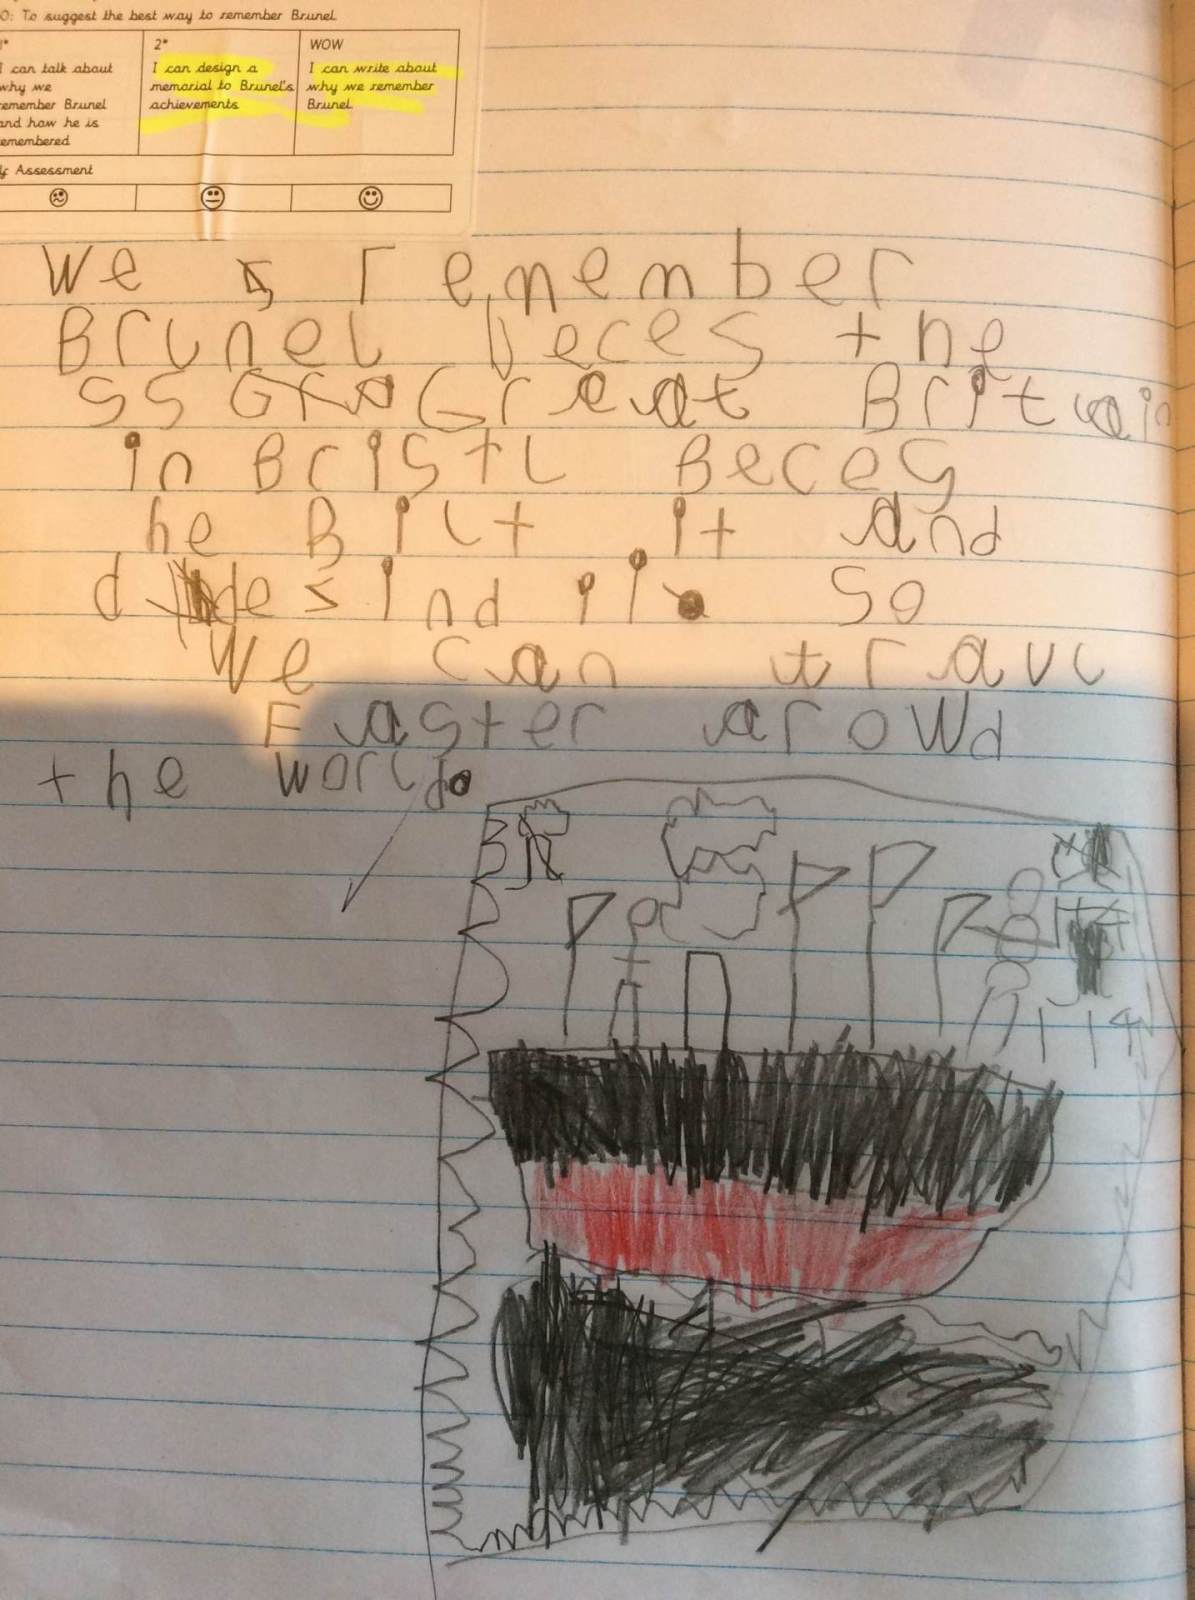 O: To suggest the best way to remember Brunel
1* 2* WOW
I can talk about why we remember Brunel and how he is remembered
I can design a memorial to Brunel's achievements
I can write about why we remember Brunel
f Assessment
We remember
Brunel beces the
SS Great Britain
in Bristl Beces
he Bilt it and
desind it. So
We can travl
Faster arowd
the world.